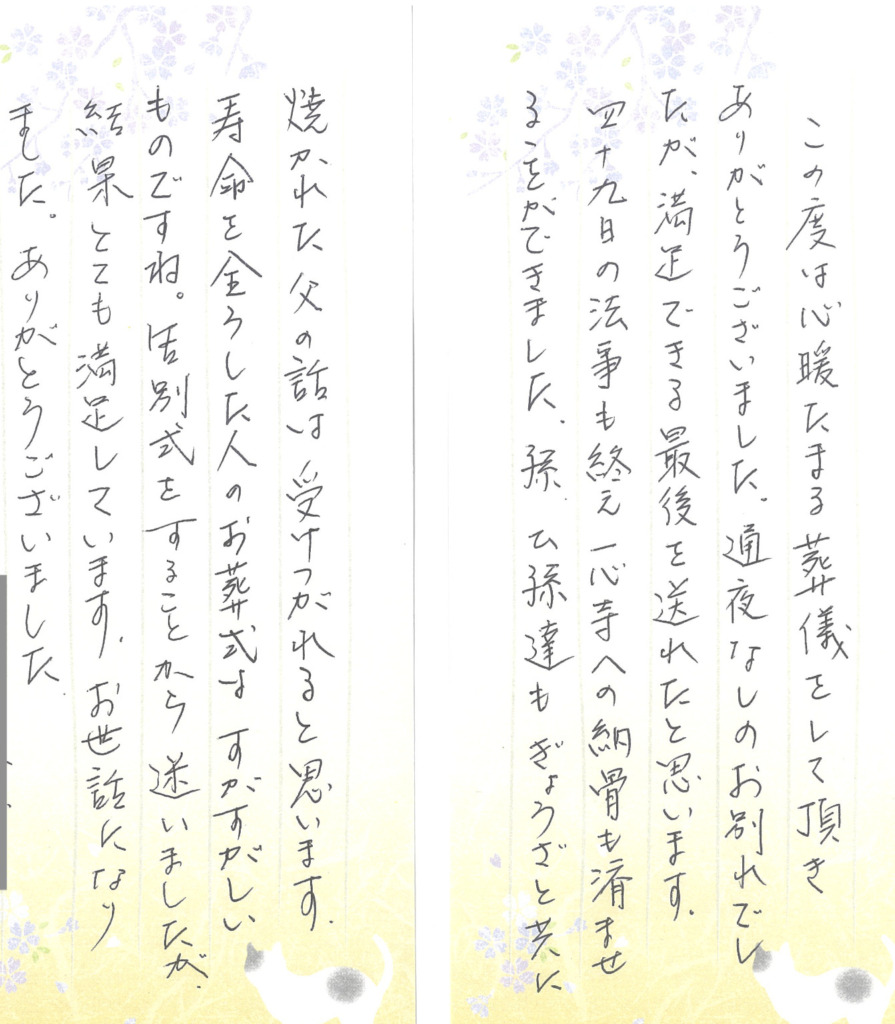 この度は心暖たまる葬儀をして頂き
ありがとうございました。通夜なしのお別れでし
たが、満足できる最後を送れたと思います。
四十九日の法事も終え一心寺への納骨も済ませ
ることができました。孫、ひ孫達もぎょうざと共に
焼かれた父の話は受けつがれると思います。
寿命を全うした人のお葬式はすがすがしい
ものですね。告別式をすることから迷いましたが、
結果とても満足しています。お世話になり
ました。ありがとうございました